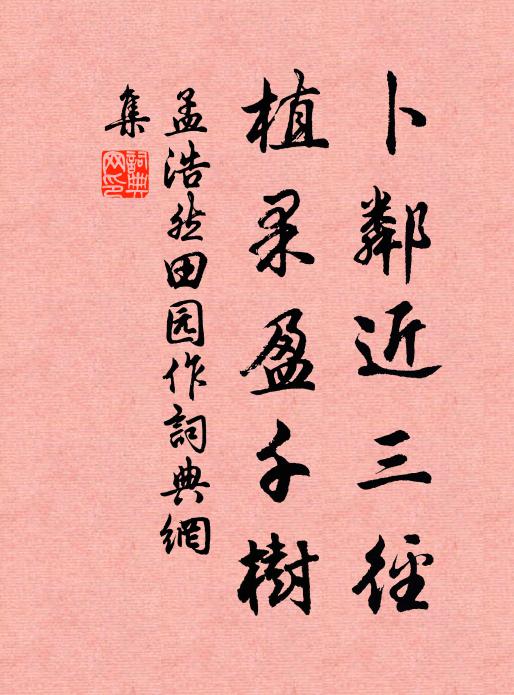 卜鄰近三徑
植果盈千樹
孟浩然田园作詞典網
集
詞典
网印